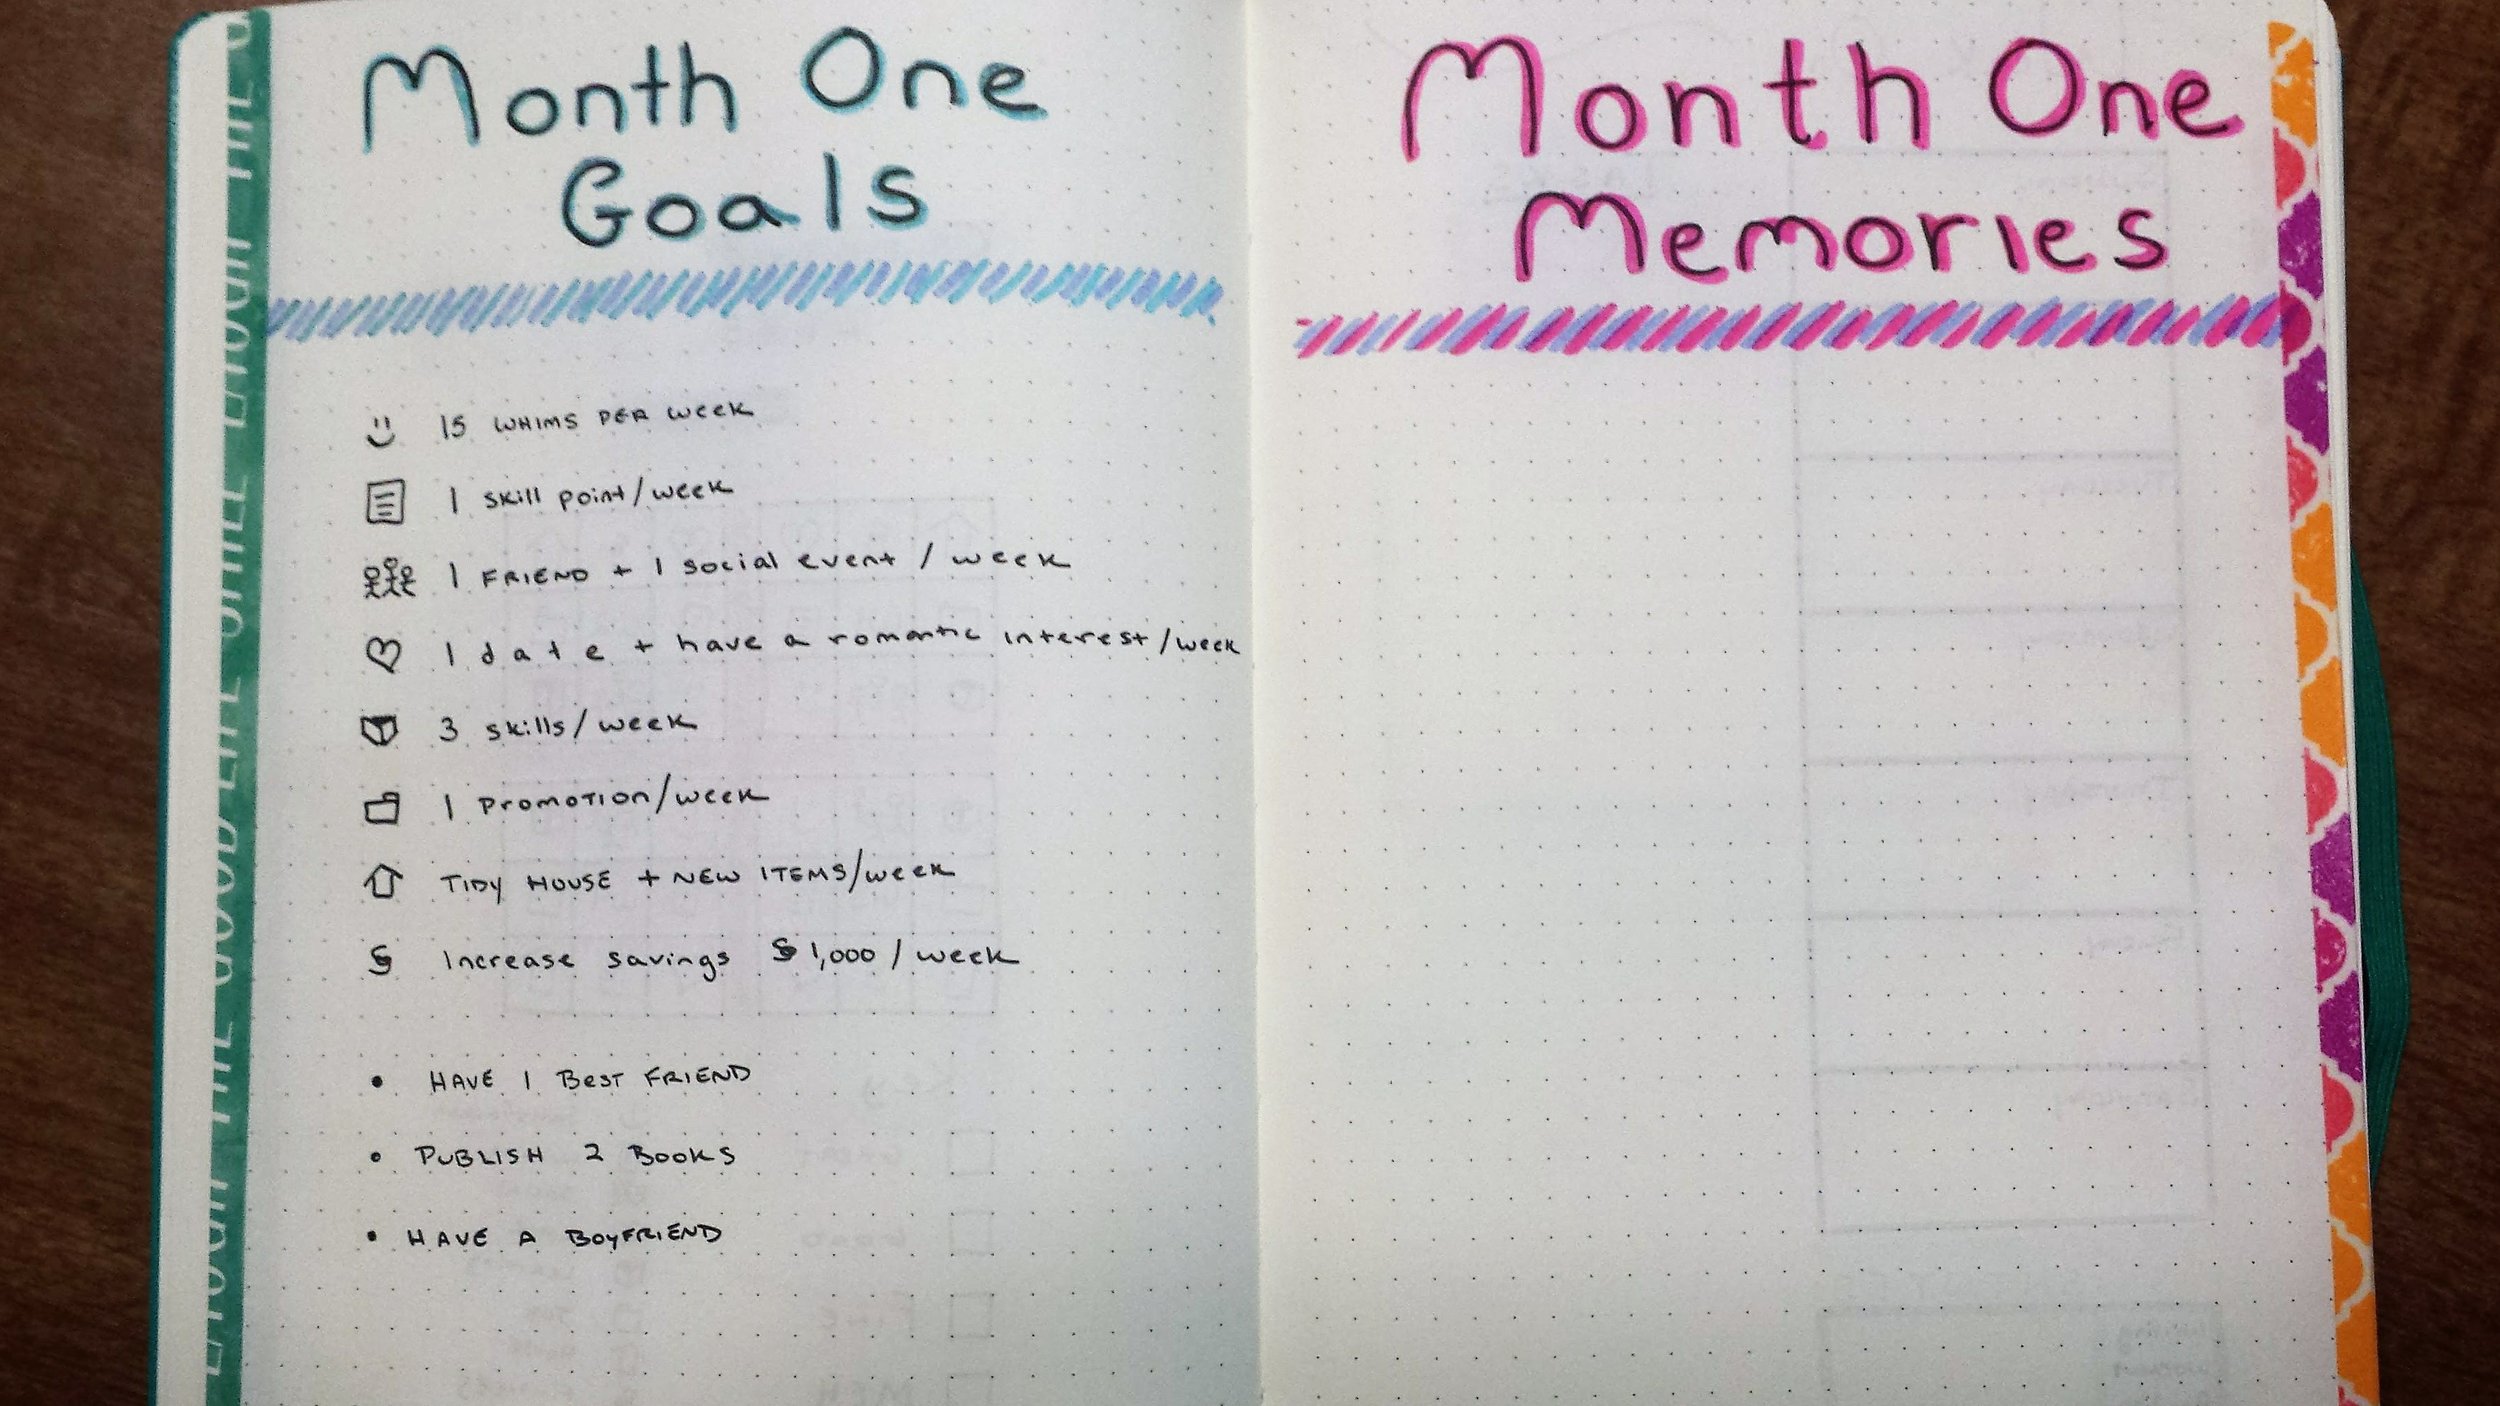 Month One
Goals
15 WHIMS PER week
1 skill point/week
1 FRIEND + 1 social event / week
1 date + have a romantic interest/week
3 skills/week
1 Promotion/week
TIDY HOUSE + NEW ITEMS/week
Increase savings § 1,000 / week
• HAVE 1 BEST FRIEND
• PUBLISH 2 BOOKS
• HAVE A BOYFRIEND
Month One
Memories